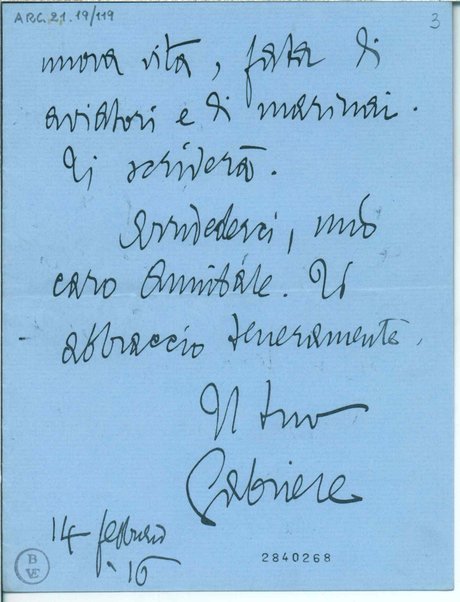 ARC.21.19/119
3
nuova vita, fata di
aviatori e di marinai.
Ti scriverà.
Arrivederci, mio
caro Annibale. Ti
abbraccio teneramente.
Il tuo
Gabriele
14 febbraio
.16
2840268
B
VE